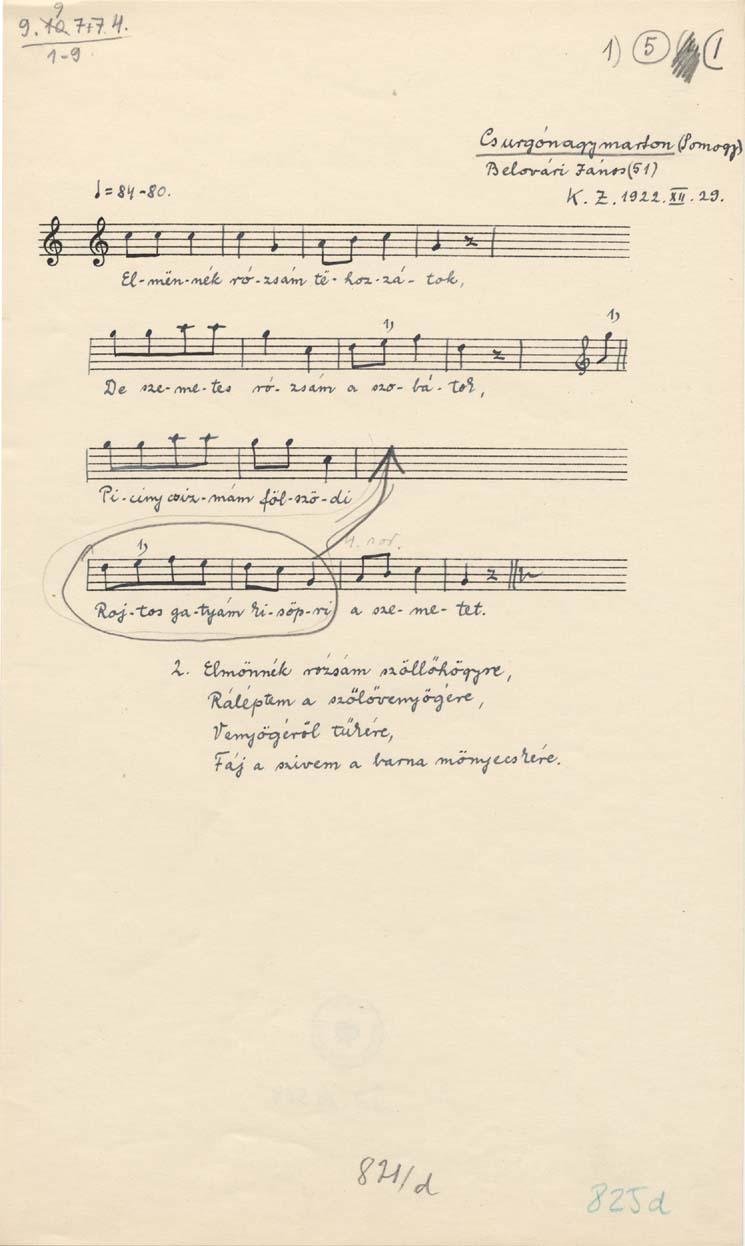 9
9. 10. 7+7. 4.
1-9
1) 5 (1
Csurgónagymarton (Somogy)
Belovári János (51)
K. Z. 1922. XII. 29.
♩ = 84-80.
El-mën-nék ró-zsám të-hoz-zá-tok,
1) 1)
De sze-me-tes ró-zsám a szo-bá-tok,
Pi-ciny csiz-mám föl-szö-di
1) 4. sor.
Roj-tos ga-tyám ki-söp-ri a sze-me-tet.
2. Elmönnék rózsám szöllőhögyre,
Ráléptem a szőlővenyögére,
Venyögéről tűkére,
Fáj a szivem a barna mönyecskére.
821/d
825d